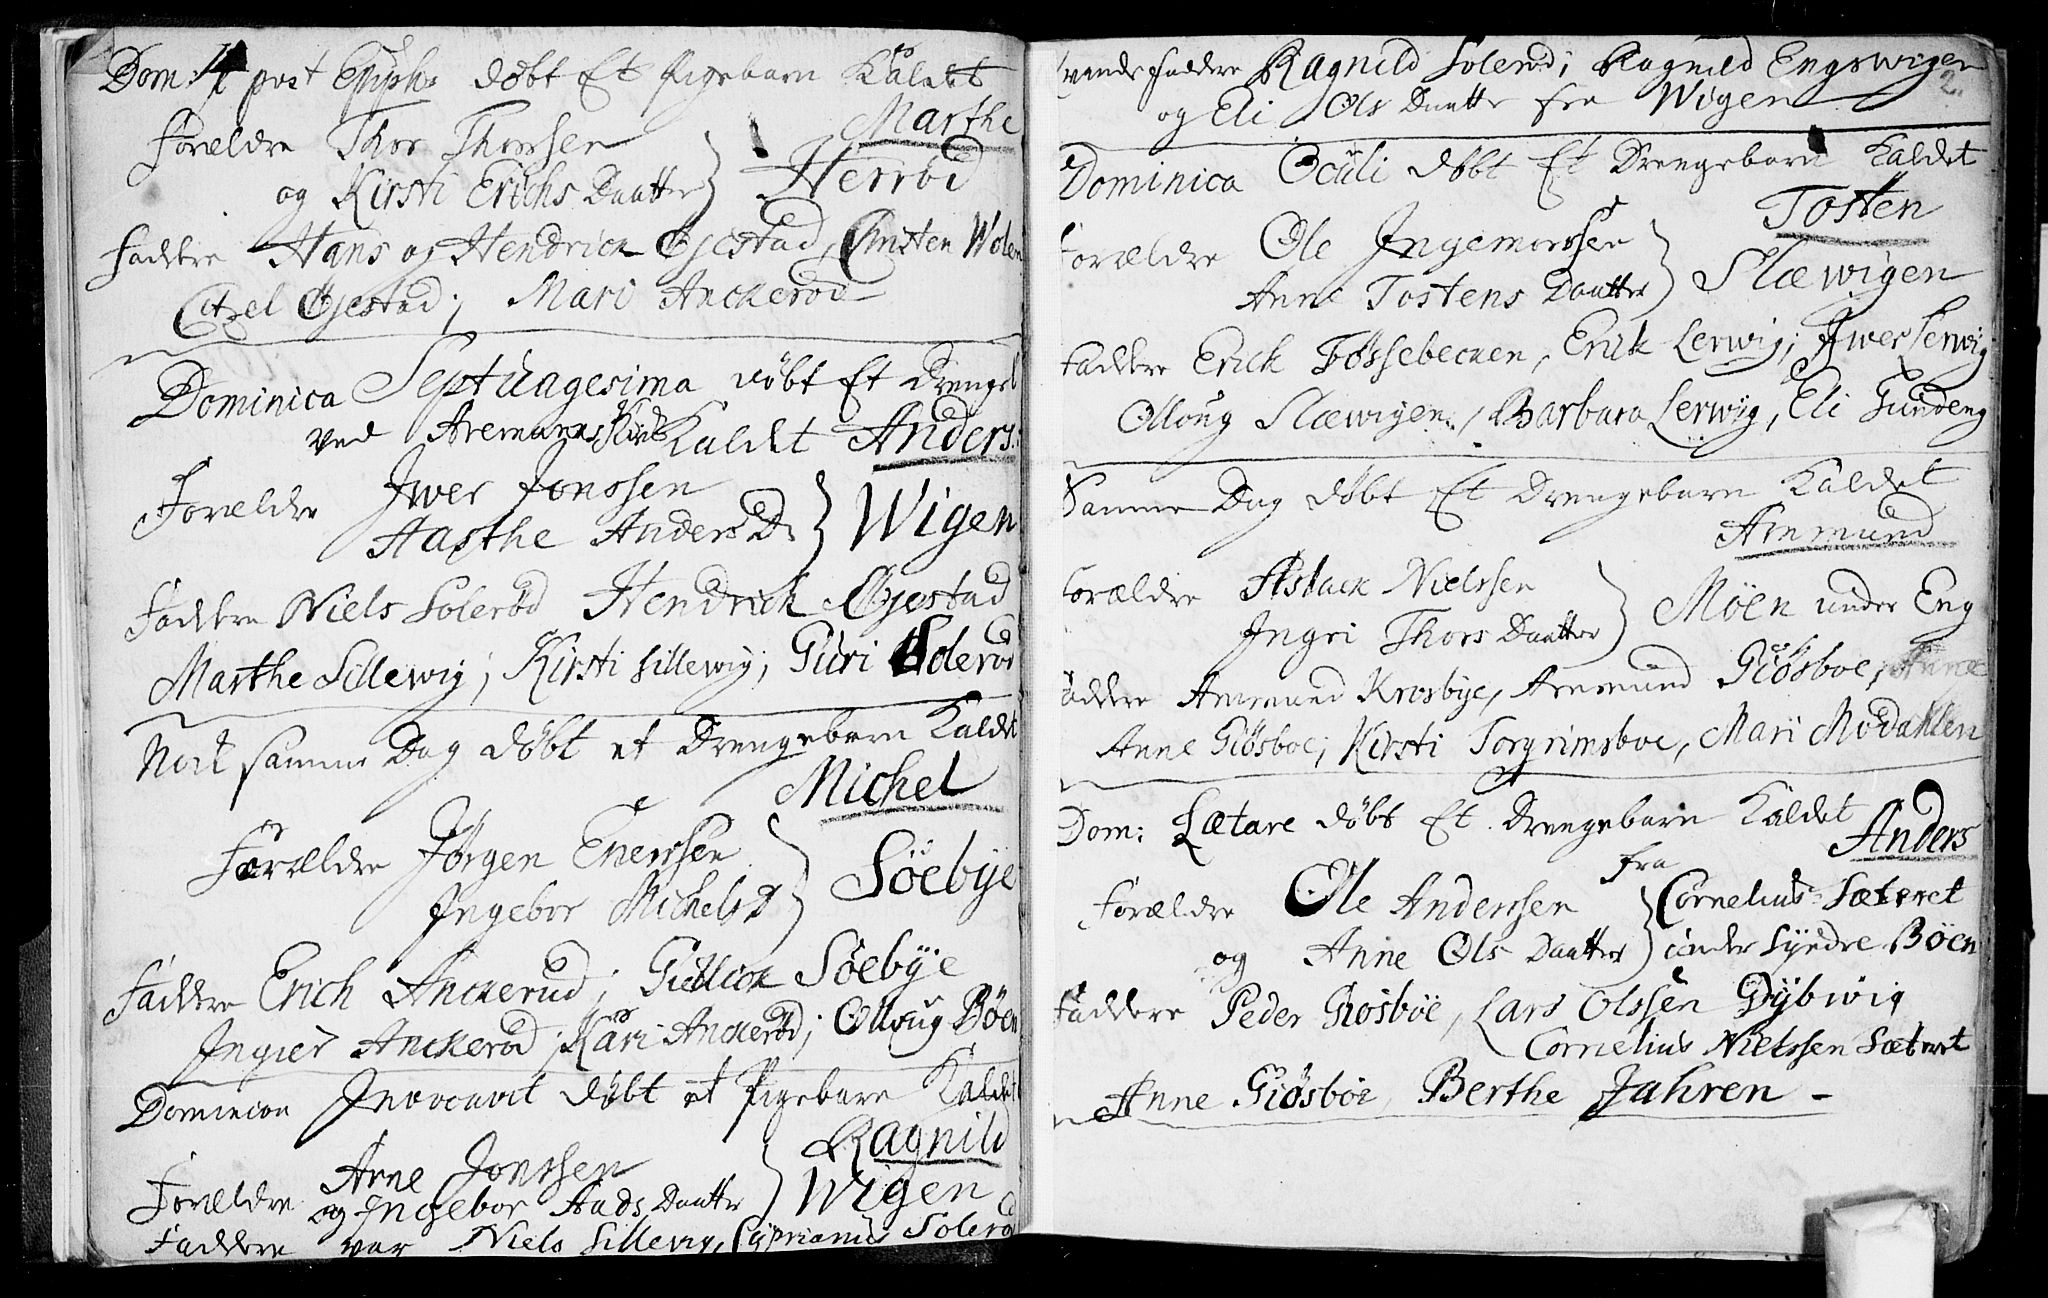 Dom: 4 post Epiph: døbt Et Pigebarn Kaldet
Marthe
Forældre Thor Thorssen
og Kirsti Erichs Daatter } Herröd
Faddere Hans og Hendrich Gjestad, Christen Wolen
Axel Gjestad; Mari Anckeröd
Dominica Septuagesima døbt Et Drengeb
ved Kaldet Anders
Forældre Iwer Jonssen
Aasthe Anders D. } Wigen
Faddere Niels Soleröd Hendrich Gjestad
Marthe Sillewig; Kirsti Sillewig; Guri Soleröd
Nock samme Dag døbt et Drengebarn Kaldet
Michel
Forældre Jørgen Enerssen
Ingebor Michels D } Söebÿe
Faddere Erich Anckerud; Gullick Söebÿe
Ingier Anckeröd; Kari Anckeröd; Olloug Böen
Dominica Invocavit døbt et Pigebarn Kaldet
Ragnild
Forældre Arne Jonssen
og Ingebor Aads Daatter } Wigen
Faddere var Niels Sillevig, Cyprianus Soleröd
2.
Faddere Ragnild Soleröd; Ragnild Engswigen
og Eli Ols Daatter fra Wigen
Dominica Oculi døbt Et Drengebarn Kaldet
Tosten
Forældre Ole Ingemorssen
Anne Tostens Daatter } Slæwigen
Faddere Erick Fossebecken, Erik Lerwig; Iwer Lerwig
Olloug Slæwigen, Barbara Lerwig, Eli Gundeng
Samme Dag døbt Et Drengebarn Kaldet
Ammund
Forældre Aslack Nielssen
Ingri Thors Daatter } Möen under Eng
Faddere Ammund Krosbÿe, Ammund Giösboe, Anne
Anne Giösboe; Kirsti Torgrimsboe, Mari Modahlen
Dom: Lætare døbt Et Drengebarn Kaldet
Anders
Forældre Ole Anderssen fra Cornelius Sæteret
og Anne Ols Daatter } under Syndre Böen
Faddere Peder Giösböe, Lars Olssen Dÿbwig
Cornelius Nielssen Sæteret
Anne Giösböe, Berthe Jahren –